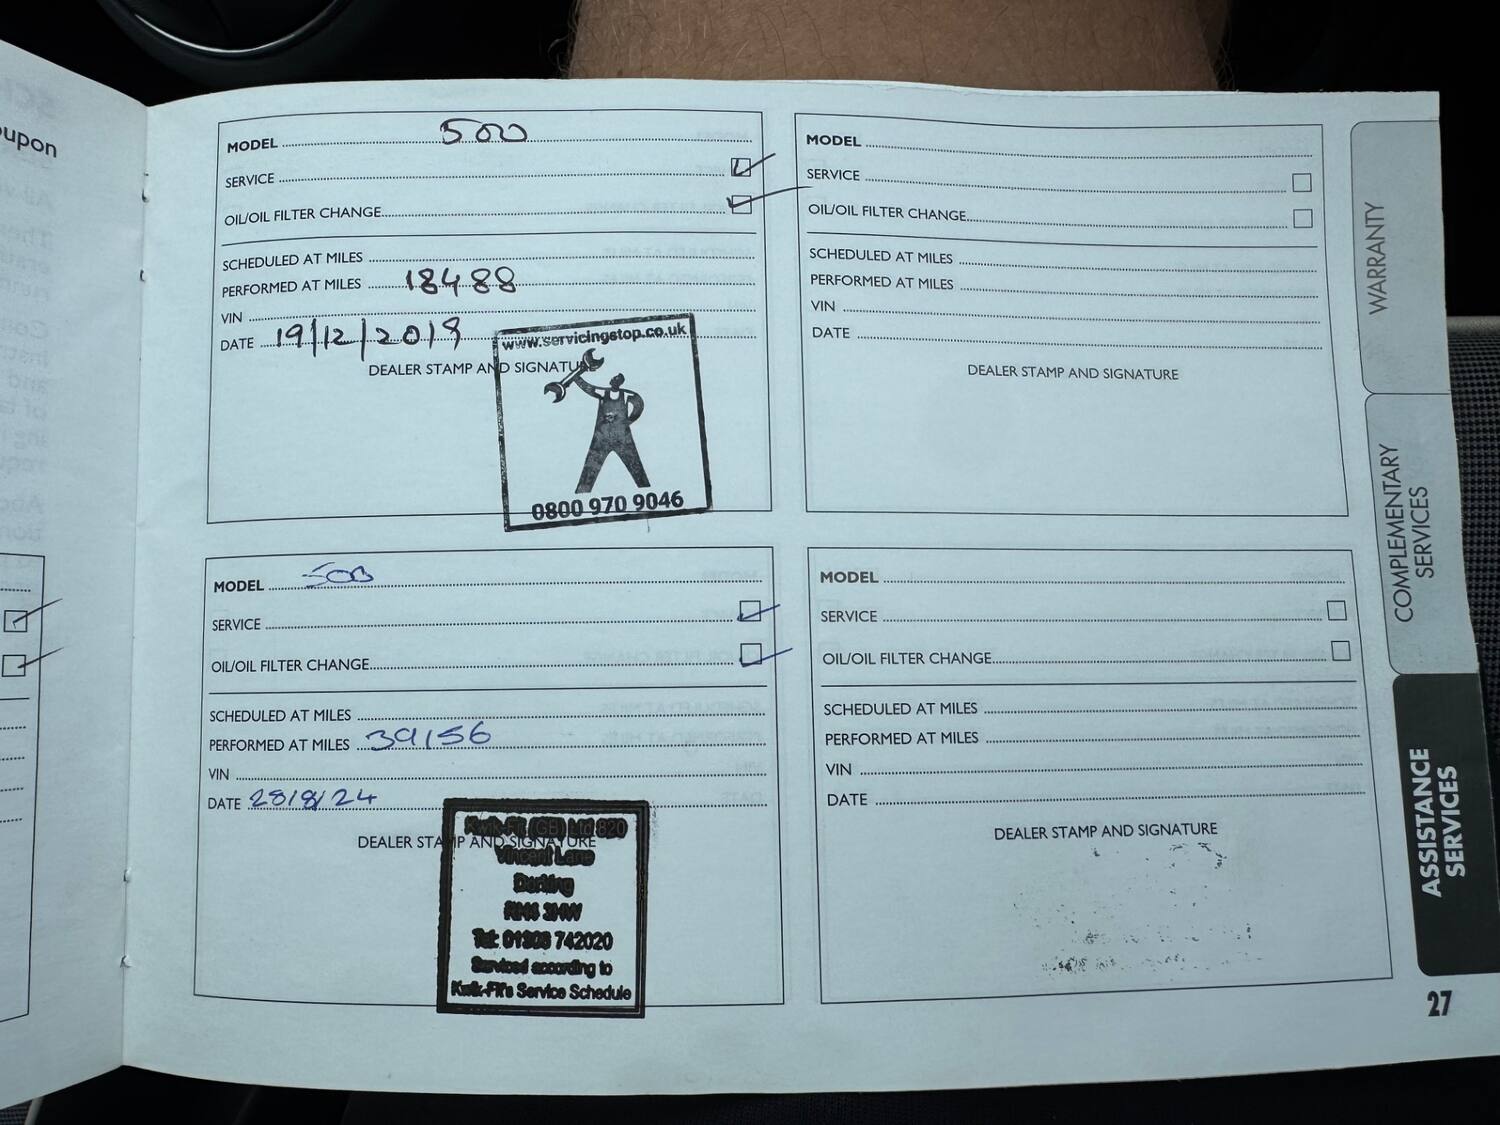 upon
MODEL 500
SERVICE
OIL/OIL FILTER CHANGE
SCHEDULED AT MILES
PERFORMED AT MILES 18488
VIN
DATE 19/12/2019
DEALER STAMP AND SIGNATURE
www.servicingstop.co.uk
0800 970 9046
MODEL
SERVICE
OIL/OIL FILTER CHANGE
SCHEDULED AT MILES
PERFORMED AT MILES
VIN
DATE
DEALER STAMP AND SIGNATURE
MODEL 500
SERVICE
OIL/OIL FILTER CHANGE
SCHEDULED AT MILES
PERFORMED AT MILES 39156
VIN
DATE 28/8/24
DEALER STAMP AND SIGNATURE
Kwik-Fit (GB) Ltd 820
Vincent Lane
Dorking
RH4 3HW
Tel: 01306 742020
Serviced according to
Kwik-Fit's Service Schedule
MODEL
SERVICE
OIL/OIL FILTER CHANGE
SCHEDULED AT MILES
PERFORMED AT MILES
VIN
DATE
DEALER STAMP AND SIGNATURE
WARRANTY
COMPLEMENTARY
SERVICES
ASSISTANCE
SERVICES
27